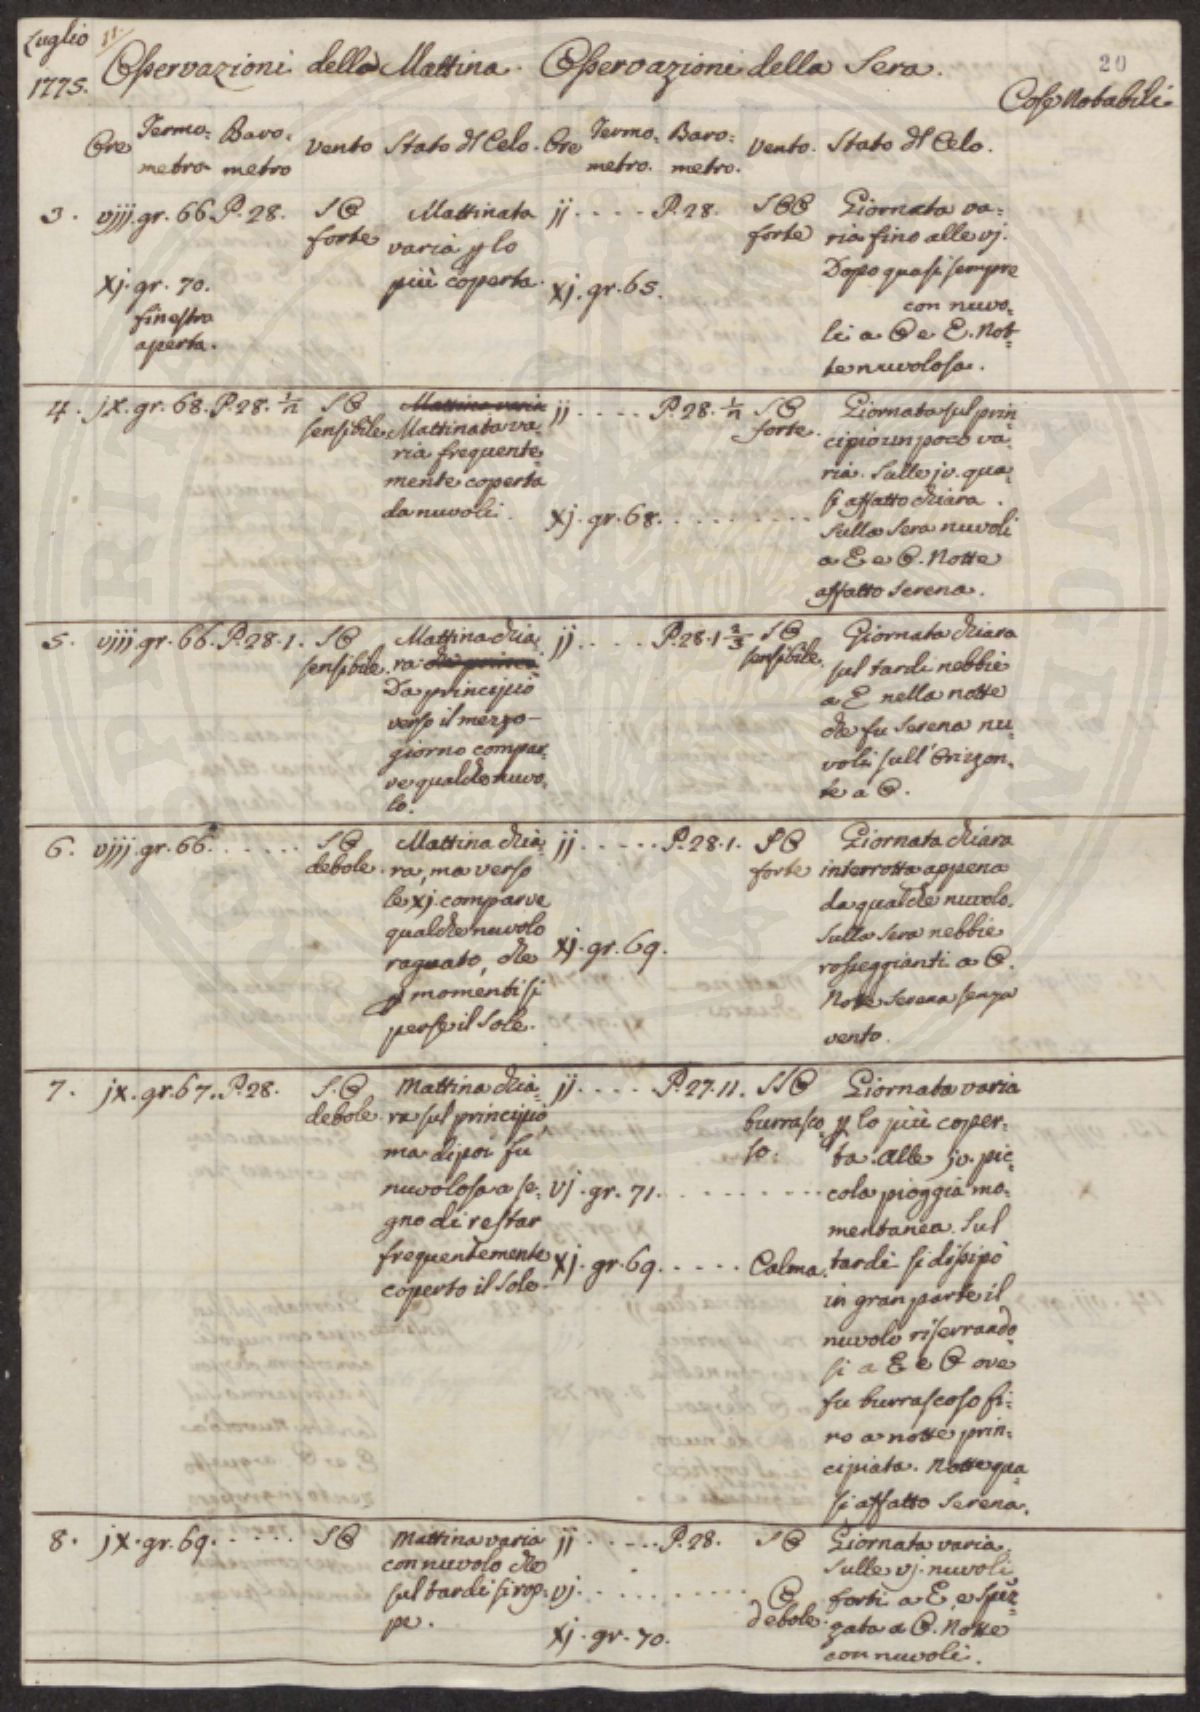 Luglio
1775.
11.
Osservazioni della Mattina. Osservazioni della Sera.
20
Cose Notabili.
Ore Termo= metro Baro= metro Vento Stato dl Celo. Ore Termo= metro. Baro= metro. Vento. Stato dl Celo.
3. viij. gr. 66. P. 28. SO
forte
Mattinata
varia p lo
più coperta.
xj. gr. 70.
finestra
aperta.
ij . . . . P. 28. SOO
forte
xj. gr. 65.
Giornata va=
ria fino alle vj.
Dopo quasi sempre
con nuvo=
li a O e E. Not=
te nuvolosa.
4. jx. gr. 68. P. 28. 1/n SO
sensibile
Mattina varia
Mattinata va=
ria frequente=
mente coperta
da nuvoli.
ij . . . . P. 28. 1/n SO
forte.
xj. gr. 68. . . . . . . . .
Giornata sul prin=
cipio un poco va=
ria. Sulle jv. qua=
si affatto chiara.
Sulla sera nuvoli
a E e O. Notte
affatto serena.
5. viij. gr. 66. P. 28. 1. SO
sensibile.
Mattina chia=
ra
Da principio
verso il mezzo=
giorno compar=
ve qualche nuvo=
lo.
ij . . . . P. 28. 1 2/3 SO
sensibile.
Giornata chiara
sul tardi nebbie
a E nella notte
che fu serena nu=
voli sull'Orizzon=
te a O.
6. viij. gr. 66. . . . . . SO
debole.
Mattina chia=
ra, ma verso
le xj. comparve
qualche nuvolo
ragnato, che
p momenti si
perse il Sole.
ij . . . . . P. 28. 1. SO
forte
xj. gr. 69.
Giornata chiara
interrotta appena
da qualche nuvolo.
Sulla sera nebbie
rosseggianti a O.
Notte serena senza
vento.
7. jx. gr. 67. P. 28. S. O
debole.
Mattina chia=
ra sul principio,
ma di poi fu
nuvolosa a se=
gno di restar
frequentemente
coperto il Sole.
ij . . . . P. 27. 11. SSO
burrasco=
so.
vj. gr. 71. . . . . . . . .
xj. gr. 69. . . . . . Calma.
Giornata varia
p lo più coper=
ta. Alle jv. pic=
cola pioggia mo=
mentanea. Sul
tardi si dissipò
in gran parte il
nuvolo riserrando=
si a E e O ove
fu burrascoso fi=
no a notte prin=
cipiata. Notte qua=
si affatto serena.
8. jx. gr. 69. . . . . . SO
Mattina varia
con nuvolo che
sul tardi si rop=
pe.
ij . . . . . P. 28. SO
vj. . . . . . . . . . O
debole.
xj. gr. 70.
Giornata varia.
Sulle vj. nuvoli
forti a E, e spez=
zata a O. Notte
con nuvoli.